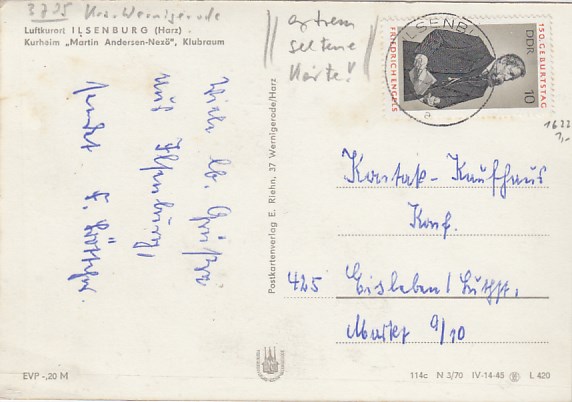 3705 Krs. Wernigerode
Luftkurort ILSENBURG (Harz)
Kurheim „Martin Andersen-Nexö", Klubraum
extrem
seltene
Karte!
ILSENBU
150. GEBURTSTAG
FRIEDRICH ENGELS
DDR
10
1622
1,-
Viele lb. Grüße
aus Ilsenburg!
sendet
Postkartenverlag E. Riehn, 37 Wernigerode/Harz
Kontak- Kaufhaus
Konf.
425 Eisleben/Luthst.
Markt 9/10
EVP -,20 M
114c N 3/70 IV-14-45 L 420